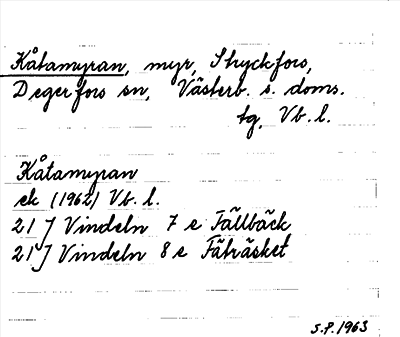 Kåtamyran, myr, Stryckfors,
Degerfors sn, Västerb. s. doms.
tg, Vb. l.
Kåtamyran
ek (1962) Vb. l.
21 J Vindeln 7 e Fällbäck
21 J Vindeln 8 e Fäträsket
S.P. 1963